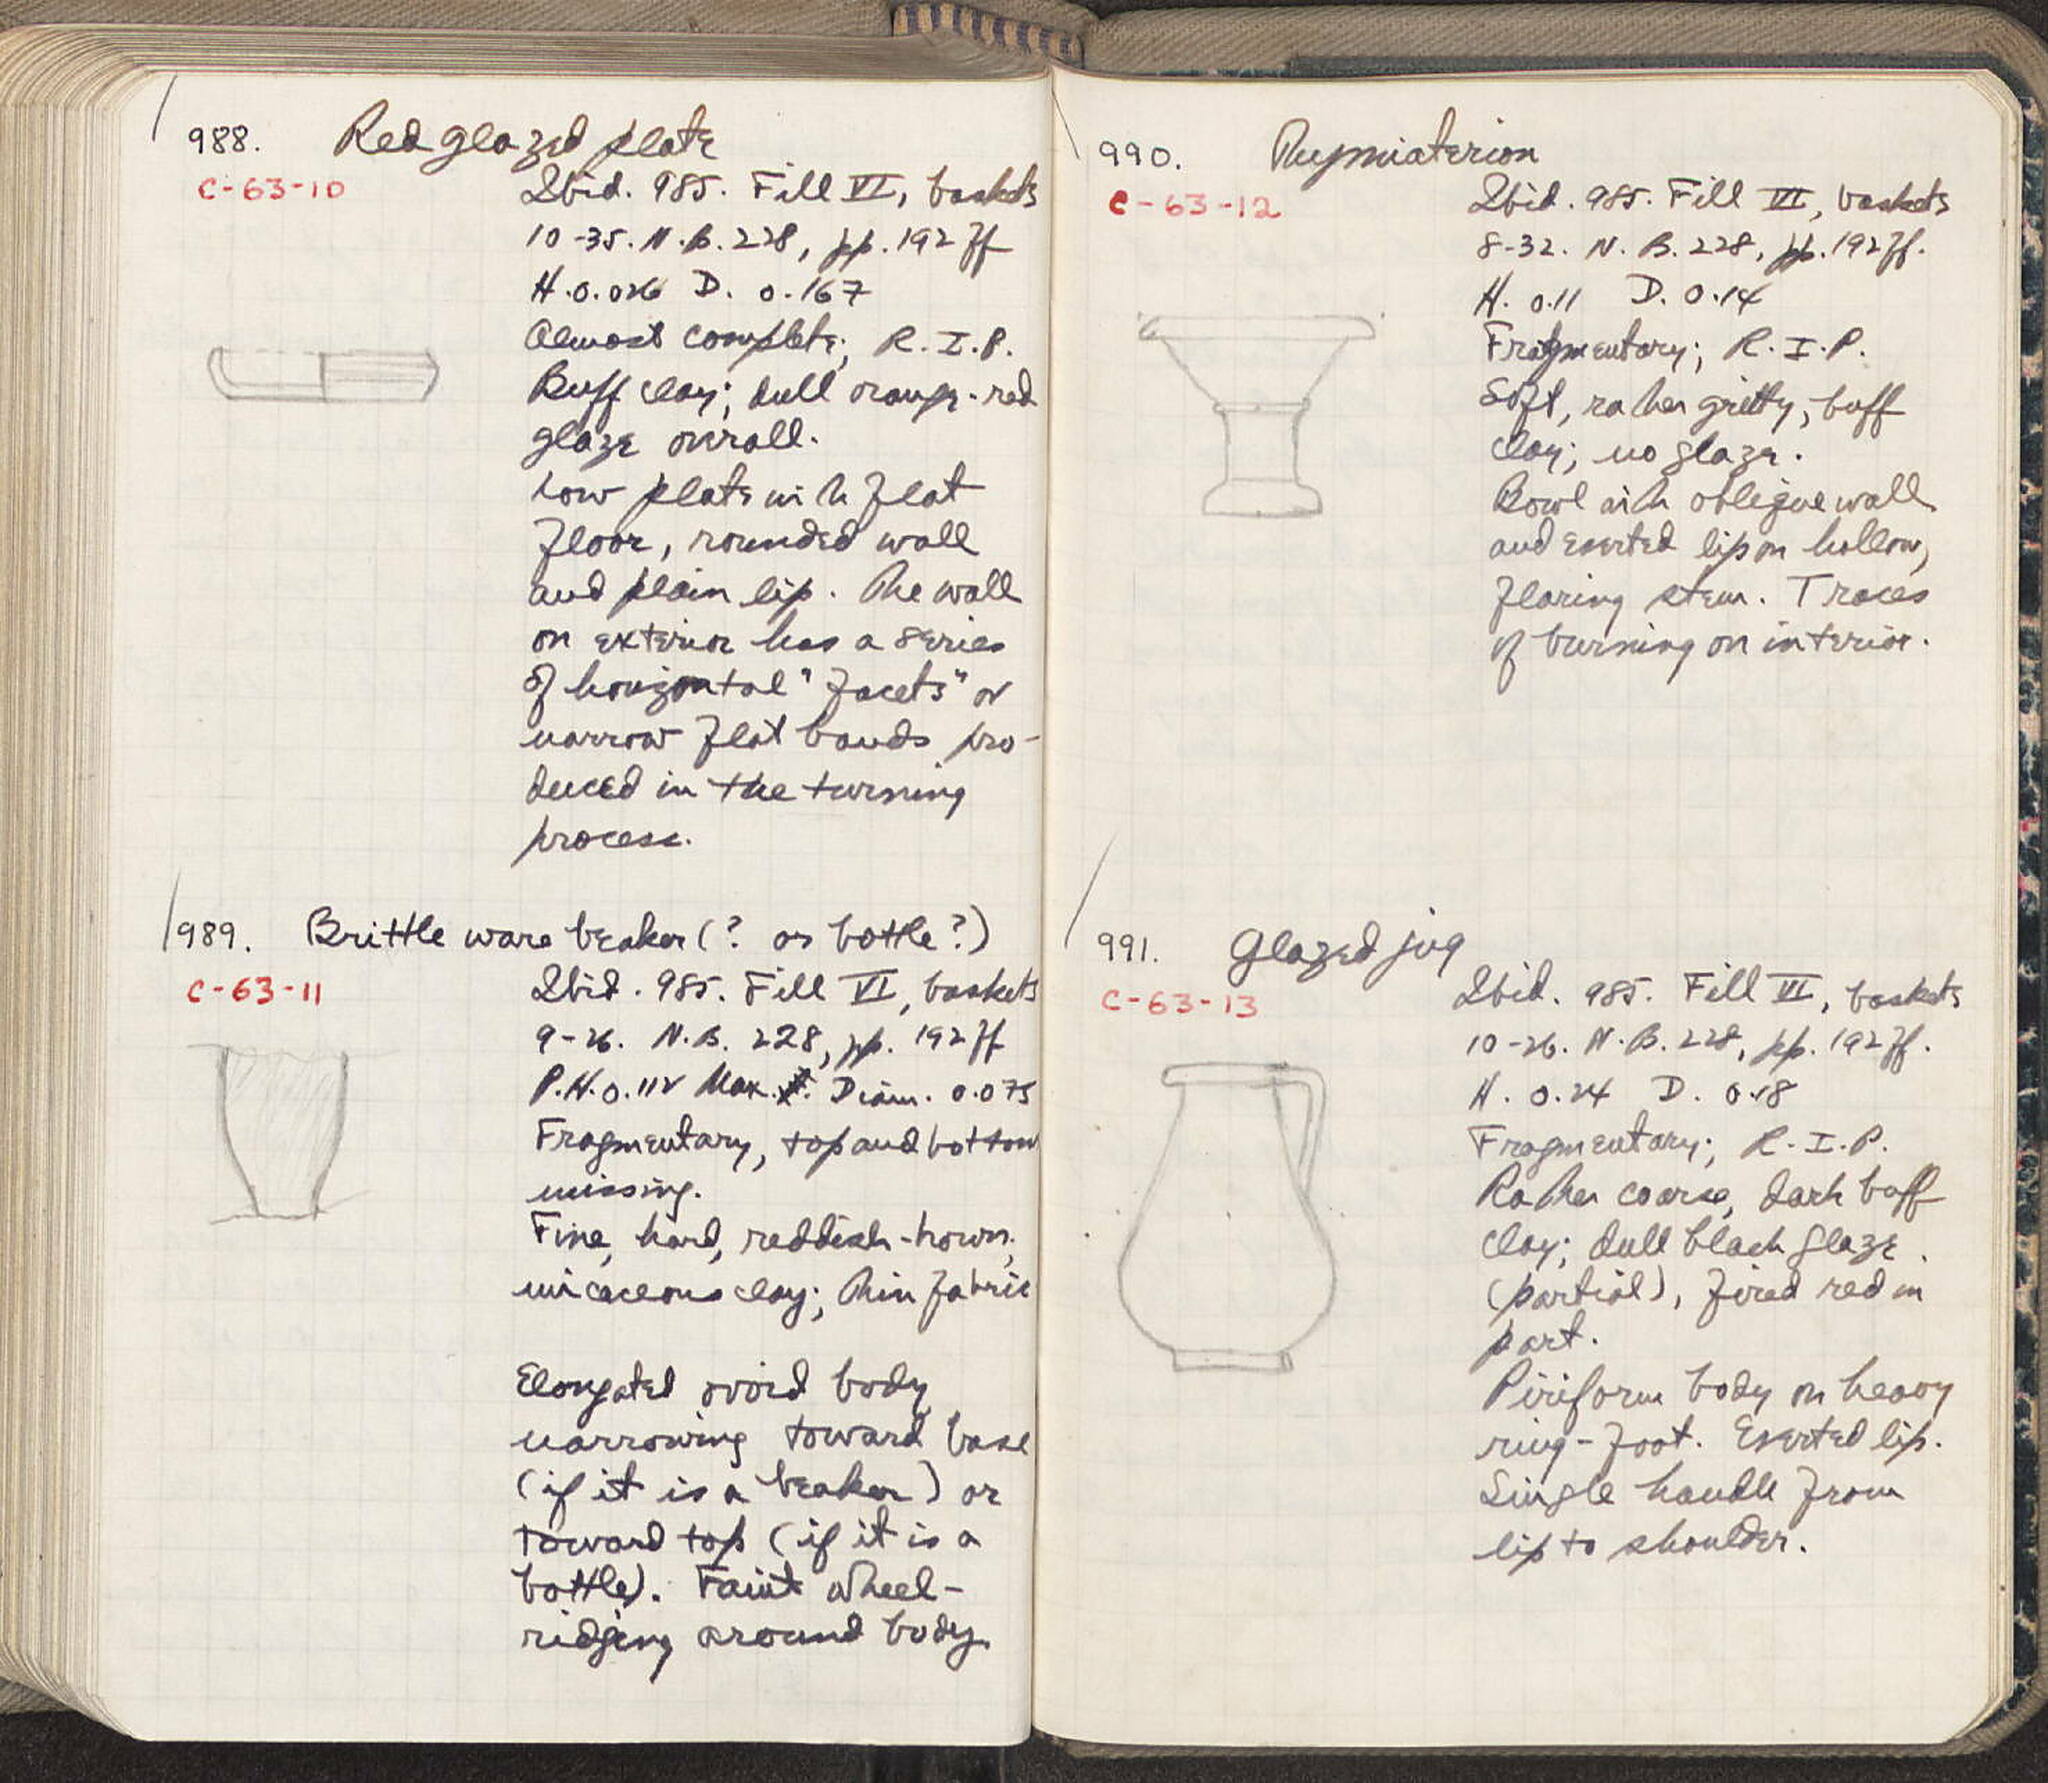 988. Red glazed plate
C-63-10
Ibid. 985. Fill VI, baskets
10-35. N.B. 228, pp. 192 ff
H. 0.026 D. 0.167
Almost complete; R.I.P.
Buff clay; dull orange-red
glaze overall.
Low plate with flat
floor, rounded wall
and plain lip. The wall
on exterior has a series
of horizontal "facets" or
narrow flat bands pro-
duced in the turning
process.
989. Brittle ware beaker (? or bottle?)
C-63-11
Ibid. 985. Fill VI, baskets
9-26. N.B. 228, pp. 192 ff
P.H. 0.112 Max. Diam. 0.075
Fragmentary, top and bottom
missing.
Fine, hard, reddish-brown,
micaceous clay; thin fabric
Elongated ovoid body
narrowing toward base
(if it is a beaker) or
toward top (if it is a
bottle). Faint wheel-
ridging around body.
990. Thymiaterion
C-63-12
Ibid. 985. Fill VI, baskets
8-32. N.B. 228, pp. 192 ff.
H. 0.11 D. 0.14
Fragmentary; R.I.P.
Soft, rather gritty, buff
clay; no glaze.
Bowl with oblique wall
and everted lip on hollow,
flaring stem. Traces
of burning on interior.
991. Glazed jug
C-63-13
Ibid. 985. Fill VI, baskets
10-26. N.B. 228, pp. 192 ff.
H. 0.24 D. 0.18
Fragmentary; R.I.P.
Rather coarse, dark buff
clay; dull black glaze
(partial), fired red in
part.
Piriform body on heavy
ring-foot. Everted lip.
Single handle from
lip to shoulder.